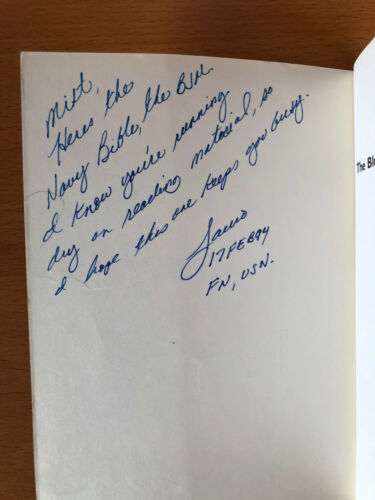 Milt,
Heres the
Navy Bible, the BJM.
I know you're running
dry on reading material, so
I hope this one keeps you busy.
17FEB94
FN, USN.
The Bl